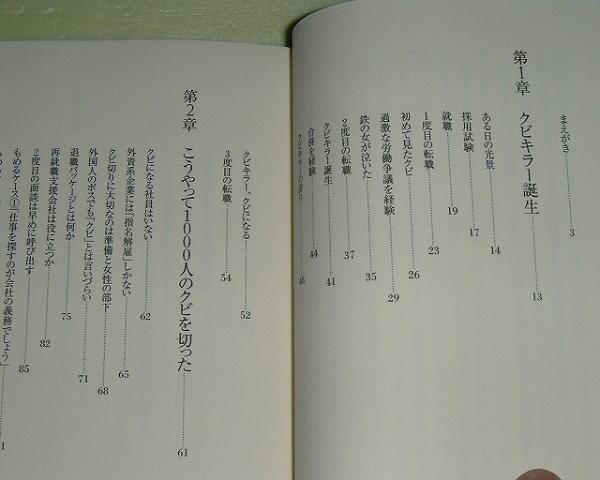 まえがき 3
第1章 クビキラー誕生 13
ある日の光景 14
採用試験 17
就職 19
1度目の転職 23
初めて見たクビ 26
過激な労働争議を経験 29
鉄の女が泣いた 35
2度目の転職 37
クビキラー誕生 41
合併を経験 44
クビキラー、クビになる 52
3度目の転職 54
第2章 こうやって1000人のクビを切った 61
クビになる社員はいない 62
外資系企業には「指名解雇」しかない 65
クビ切りに大切なのは準備と女性の部下 68
外国人のボスでも「クビ」とは言いづらい 71
退職パッケージとは何か 75
再就職支援会社は役に立つか 82
2度目の面談は早めに呼び出す 85
もめるケース①「仕事を探すのが会社の義務でしょう」